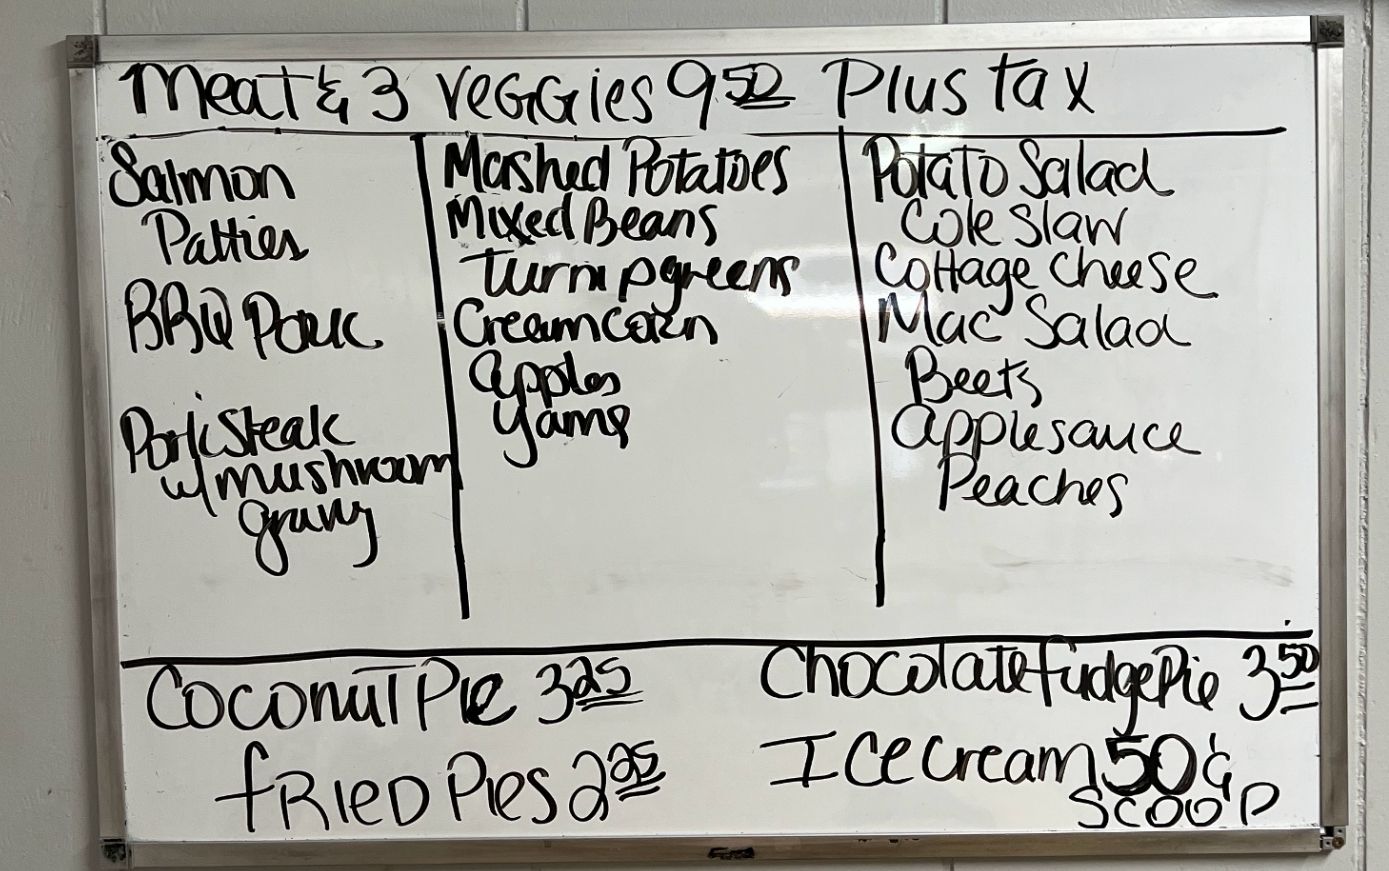 Meat & 3 Veggies 9.50 Plus tax
Salmon
Patties
BBQ Pork
Pork Steak
w/mushroom
gravy
Mashed Potatoes
Mixed Beans
Turnip greens
Cream corn
apples
yams
Potato Salad
Cole Slaw
Cottage Cheese
Mac Salad
Beets
applesauce
Peaches
Coconut Pie 3.25
Fried Pies 2.25
Chocolate fudge Pie 3.50
Ice Cream 50¢
Scoop